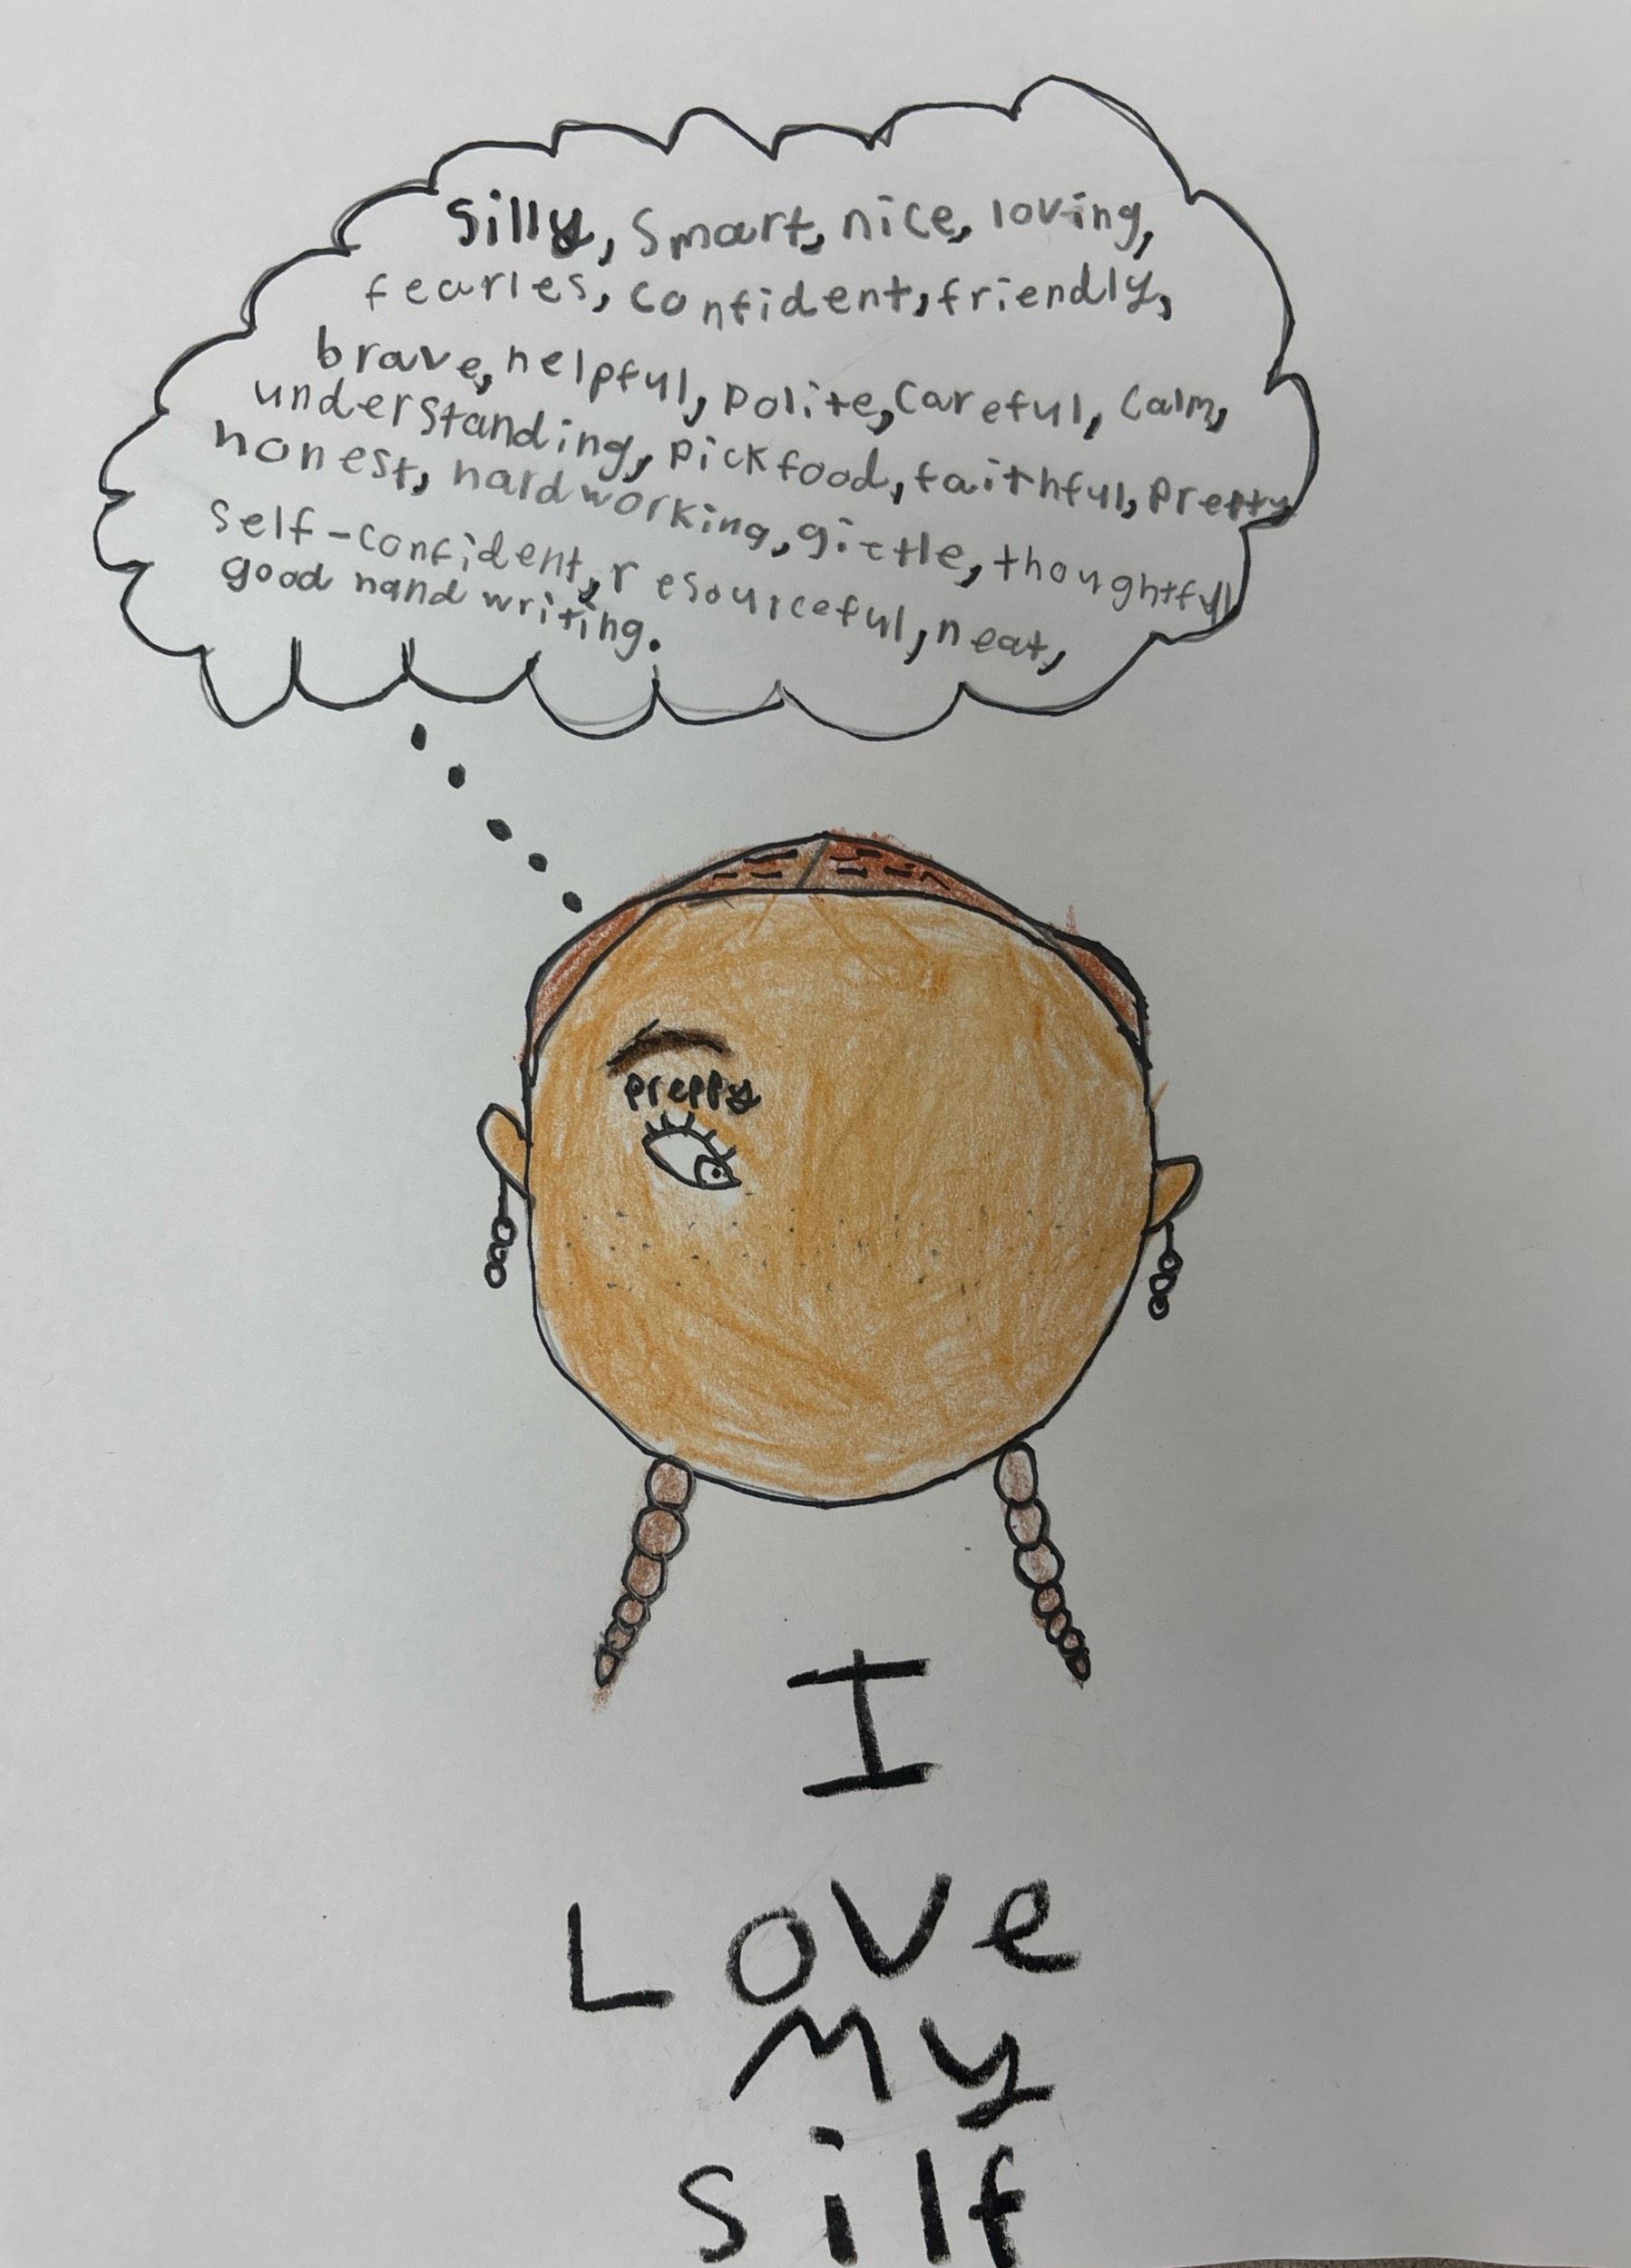 silly, smart, nice, loving,
fearles, confident, friendly,
brave, helpful, polite, careful, calm,
understanding, pick food, faithful, pretty
honest, hard working, gictle, thoughtful
self-confident, resourceful, neat,
good hand writing.
preppy
I
Love
My
silf